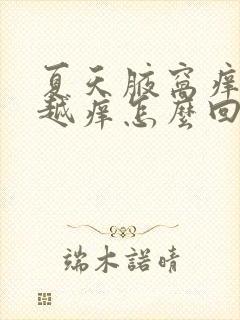 夏天腋窝痒
越痒怎麼回
端木諾晴